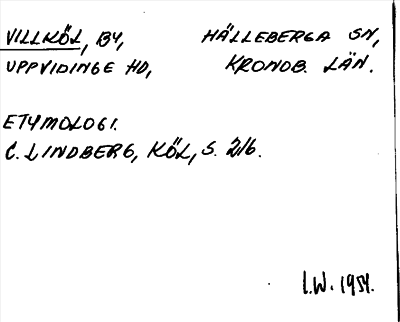 VILLKÖL, BY, HÄLLEBERGA SN,
UPPVIDINGE HD, KRONOB. LÄN.
ETYMOLOGI.
C. LINDBERG, KÖL, S. 216.
I.W. 1954.